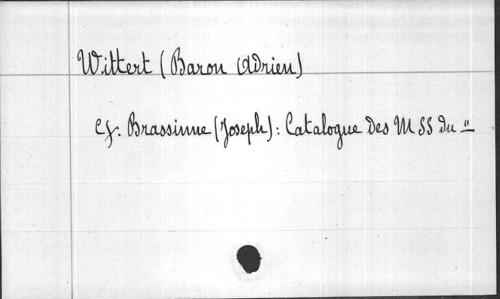 Wittert (Baron Adrien)
Cf: Brassinne (Joseph): Catalogue des MSS du "